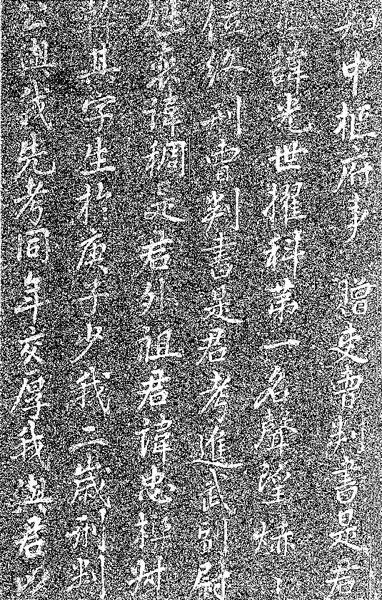 知中樞府事 贈吏曹判書是君
諱光世擢科第一名聲望
位終刑曹判書是君考進武副尉
諱稠是君外祖君諱忠
幹其字生於庚子少我二歲刑判
公與我先考同年交厚我與君以